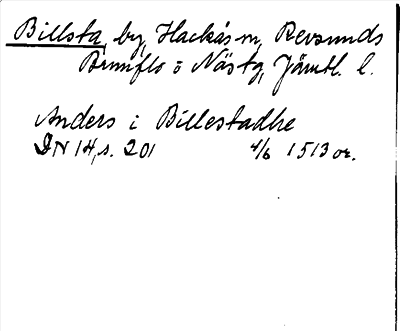 Billsta, by, Hackås sn, Revsunds
Brunflo o Näs tg, Jämtl. l.
Anders i Billestadhe
DN 14, s. 201 4/6 1513 or.